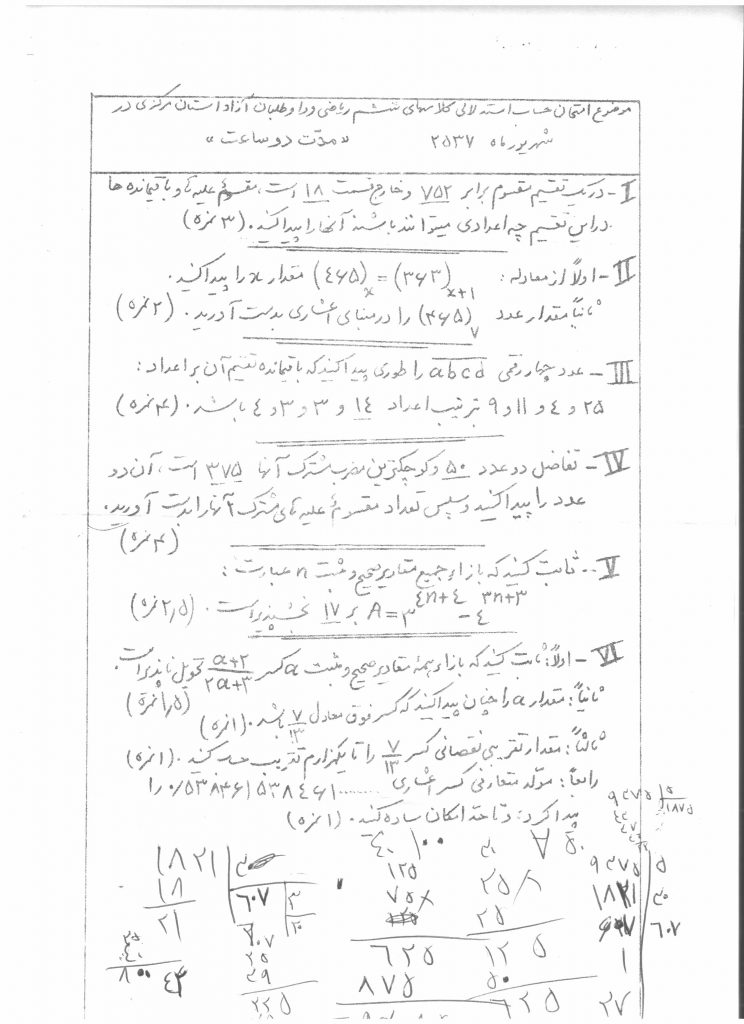 موضوع امتحان حساب استدلالی کلاسهای ششم ریاضی و داوطلبان آزاد استان مرکزی در
شهریور ماه ۲۵۳۷ «مدّت دو ساعت»
I - در یک تقسیم مقسوم برابر ۷۵۲ و خارج قسمت ۱۸ است، مقسومٌ علیه ها و باقیمانده ها
در این تقسیم چه اعدادی میتوانند باشند آنها را پیدا کنید. (۳ نمره)
II - اولاً از معادله: (۳۶۳)x+1 = (۴۶۵)x مقدار x را پیدا کنید.
ثانیاً مقدار عدد (۳۶۵)۷ را در مبنای اعشاری بدست آورید. (۲ نمره)
III - عدد چهار رقمی abcd را طوری پیدا کنید که باقیمانده تقسیم آن بر اعداد:
۲۵ و ۴ و ۱۱ و ۹ بترتیب اعداد ۱۴ و ۳ و ۳ و ۴ باشد. (۴ نمره)
IV - تفاضل دو عدد ۵۰ و کوچکترین مضرب مشترک آنها ۳۷۵ است، آن دو
عدد را پیدا کنید و سپس تعداد مقسومٌ علیه های مشترک آنها را بدست آورید.
(۴ نمره)
V - ثابت کنید که بازاء جمیع مقادیر صحیح و مثبت n عبارت:
A = ۳^۴n+۴ - ۴^۳n+۳ بر ۱۷ بخشپذیر است. (۲٫۵ نمره)
VI - اولاً: ثابت کنید که بازاء همهٔ مقادیر صحیح و مثبت a کسر a+۲/۲a+۳ تحویل ناپذیر است.
(۱٫۵ نمره)
ثانیاً: مقدار a را چنان پیدا کنید که کسر فوق معادل ۷/۱۳ باشد. (۱ نمره)
ثالثاً: مقدار تقریبی نقصانی کسر ۷/۱۳ را تا یکهزارم تقریب حساب کنید. (۱ نمره)
رابعاً: مولّد متعارفی کسر اعشاری ۰/۵۳۸۴۶۱۵۳۸۴۶۱........ را
پیدا کرده و تا حد امکان ساده کنید. (۱ نمره)
۹۳۷۵ ۵
۱۸۷۵
۱۸۲۱
۱۸
۶۰۷
۲۱
۱۲۵
۷۵
۶۲۵
۸۷۵
۲۵
۲۵
۱۲۵
۶۲۵
۹۳۷۵ ۵
۱۸۲۱
۶۰۷
۱
۲۷